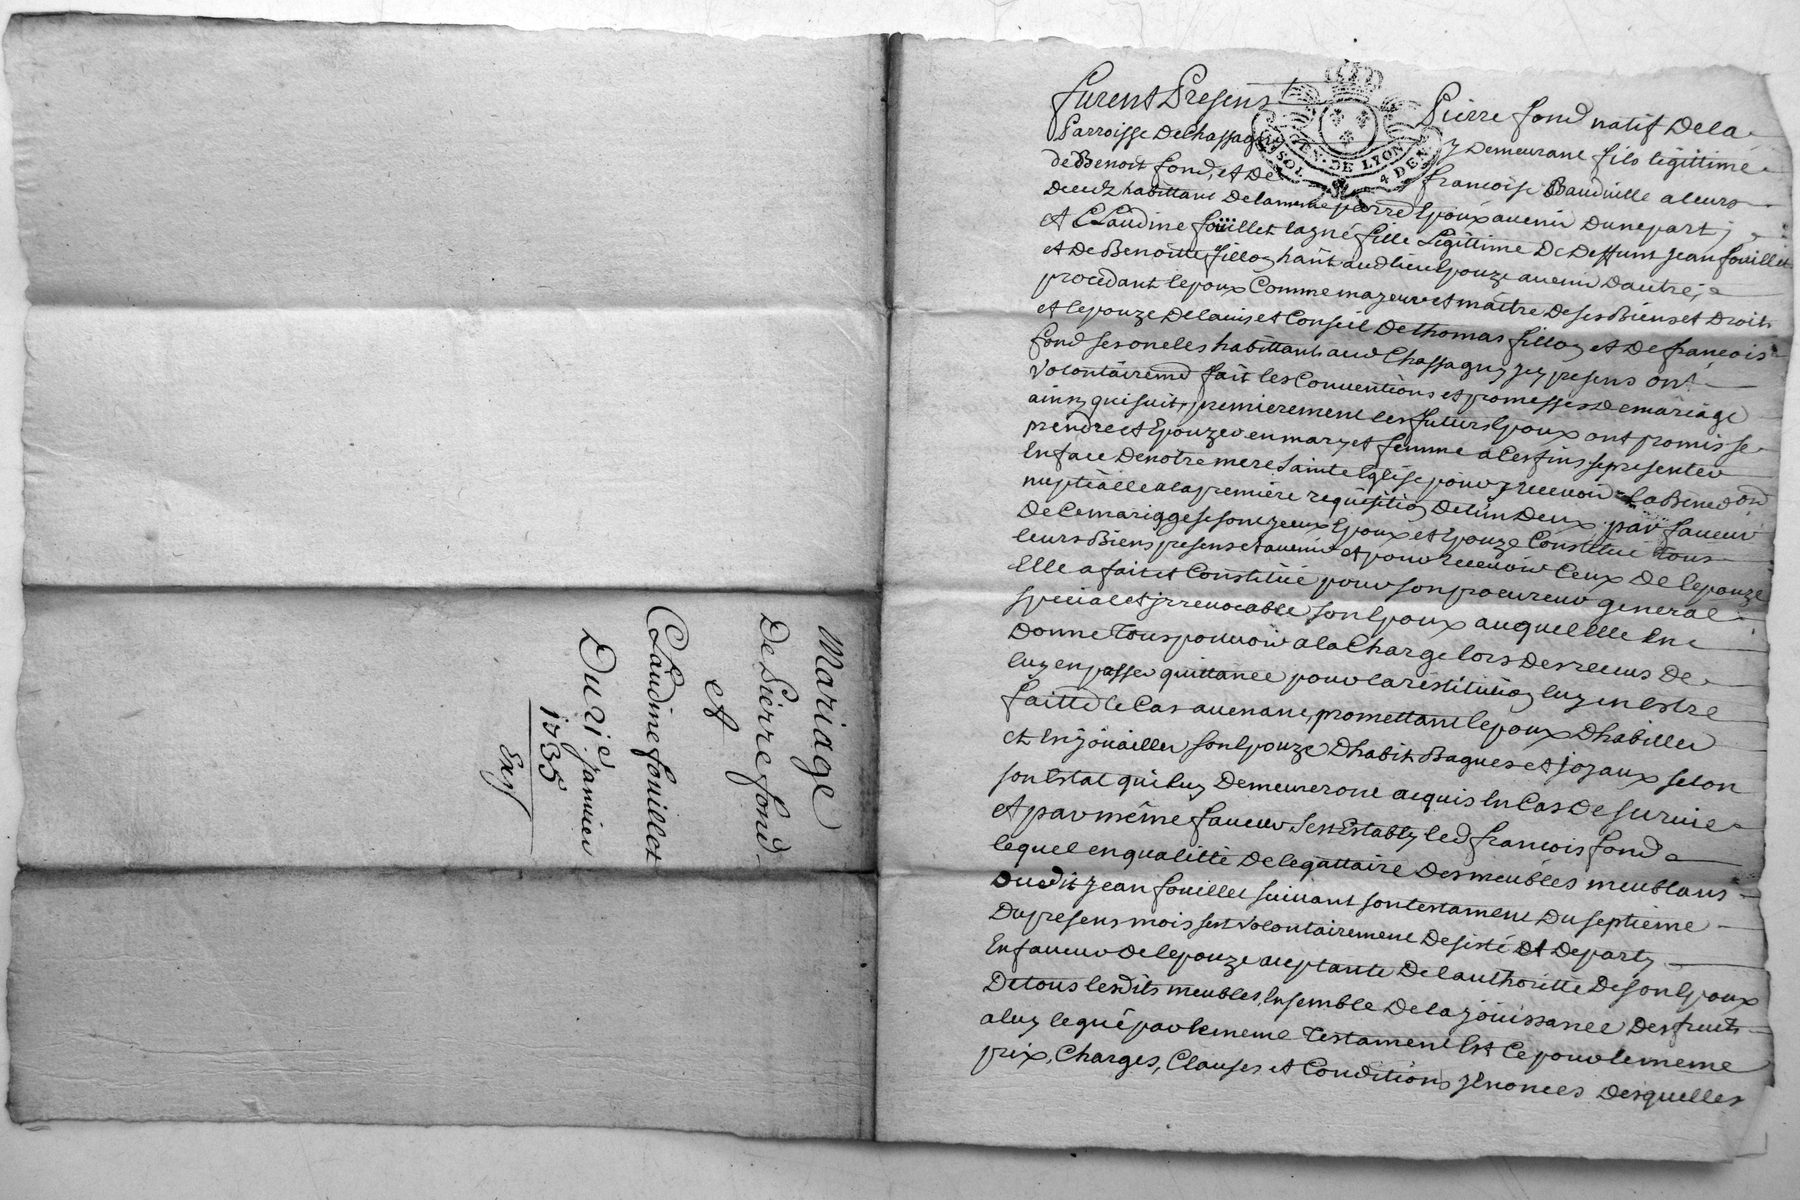 Mariage
De Pierre fond
et
Claudine fouillet
Du 21e janvier
1735
Exp
furent Presens Pierre fond natif De la
Parroisse De Chassagny Demeurant fils légittime
de Benoit fond, et De francoise Bauduille aleurs
De la meme parre Epoux avenir Dunepart;
et Claudine fouillet lagné fille Legittime De Deffunt Jean fouillet
et De Benoitte filloy hãnt aud lieu Epouze avenir Dautre;
procedant lepoux Comme majeur et maitre De ses Biens et Droits
et lepouze De lavis et Conseil De thomas filloy et De francois
fond ses oncles habittants aud Chassagny jcy presens ont
Volontairemt fait les Conventions et promesses De mariage
ainsy quisuit, premierement les futurs Epoux ont promis se
prendre et Epouzer en mary et femme a Ces fins se presenter
En face De notre mere Sainte Eglise pour y recevoir la Bened on
nuptialle a la premiere requisition De lun Deux par faveur
De Ce mariagge se sont yceux Epoux et Epouze Constitué tous
leurs Biens presens et avenir et pour recevoir Ceux De lepouze
Elle a fait et Constitüé pour son procureur general
special et jrrevocable son Epoux auquel Elle En
Donne tous pouvoir a la Charge lors Des recus De
luy en passer quittance pour la réstitution luy en Estre
faitte le Cas avenant, promettant lepoux Dhabiller
et Enjoüailler son Epouze Dhabits Bagues et joyaux selon
son Estat qui luy Demeureront acquis En Cas De survie
et par même faveur sest Estably led francois fond
lequel en qualitté De legattaire Des meubles meublans
Dudit Jean fouillet suivant son testament Du septieme
Du presens mois sest volontairement Desisté et Departy
En faveur De lepouze acceptante De lauthoritté De son Epoux
De tous lesdits meubles, Ensemble De la jouissance Des fruits
a luy legué par le meme testament Et Ce pour le meme
prix, Charges, Clauses et Conditions y Enoncées Desquelles
GEN. DE LYON
SOL 4 DEN